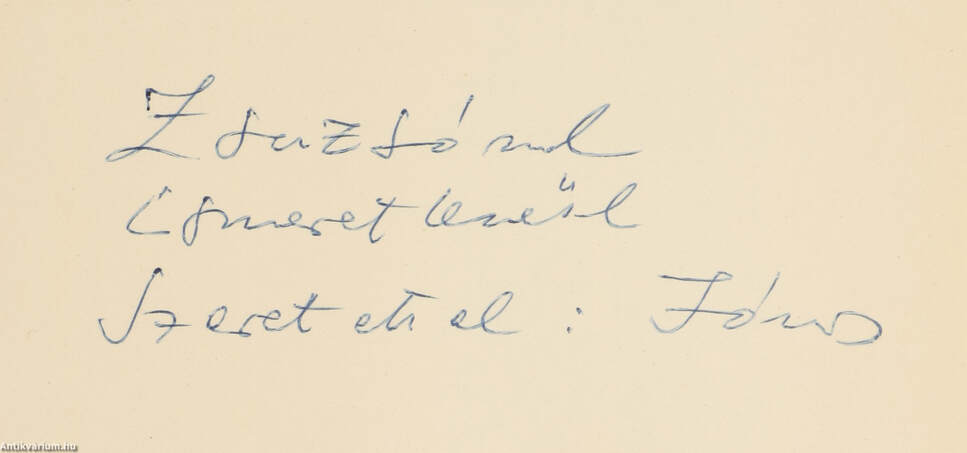 Zsuzsónak
ismeretlenül
szeretettel: János
Antikvárium.hu